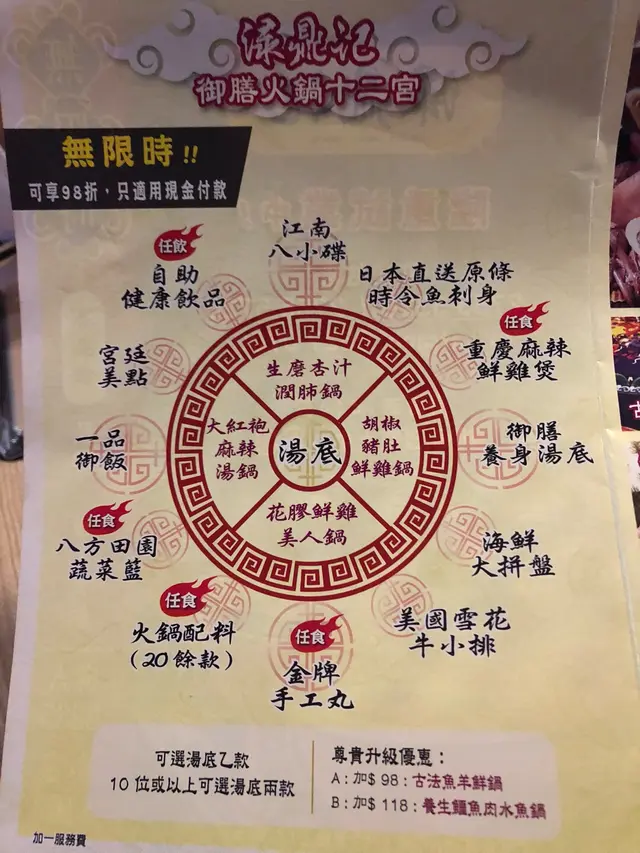 渌鼎记
御膳火鍋十二宮
無限時!!
可享98折,只適用現金付款
江南
八小碟
日本直送原條
時令魚刺身
任食
重慶麻辣
鮮雞煲
御膳
養身湯底
海鮮
大拼盤
美國雪花
牛小排
任食
金牌
手工丸
任食
火鍋配料
(20餘款)
任食
八方田園
蔬菜籃
一品
御飯
宮廷
美點
任飲
自助
健康飲品
生磨杏汁
潤肺鍋
胡椒
豬肚
鮮雞鍋
花膠鮮雞
美人鍋
大紅袍
麻辣
湯鍋
湯底
可選湯底乙款
10位或以上可選湯底兩款
尊貴升級優惠:
A:加$98:古法魚羊鮮鍋
B:加$118:養生鱷魚肉水魚鍋
加一服務費